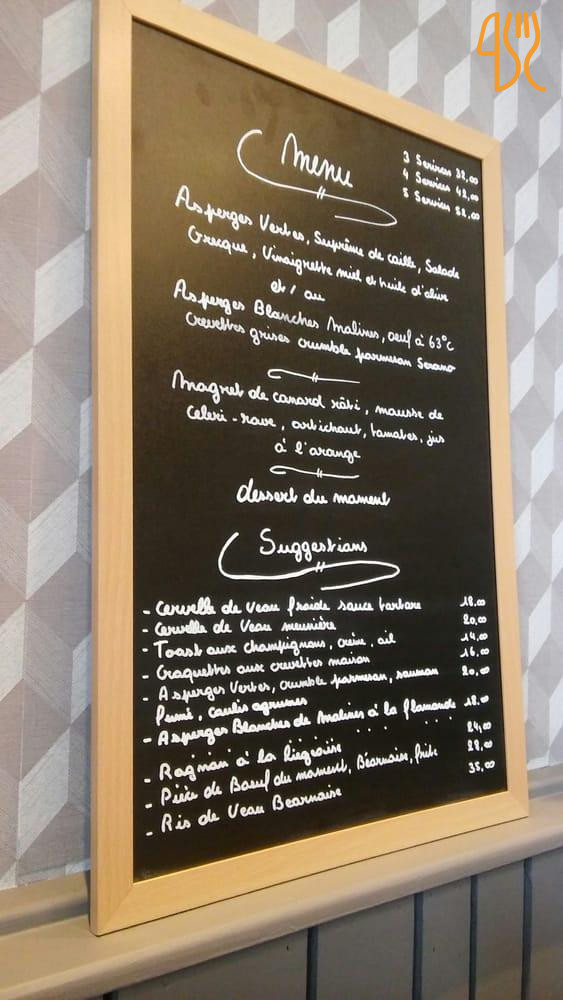 Menu
3 Services 32,00
4 Services 42,00
5 Services 52,00
Asperges Vertes, Suprême de caille, Salade
Grecque, Vinaigrette miel et huile d'olive
et / ou
Asperges Blanches Malines, oeuf à 63°C
Crevettes grises crumble parmesan Serano
Magret de canard rôti, mousse de
Celeri-rave, artichaut, tomates, jus
à l'orange
dessert du moment
Suggestions
- Cervelle de Veau froide sauce tartare 18,00
- Cervelle de Veau meunière 20,00
- Toast aux champignons, crème, ail 14,00
- Croquettes aux crevettes maison 16,00
- Asperges Vertes, crumble parmesan, saumon 20,00
fumé, coulis agrumes
- Asperges Blanches de Malines à la flamande 18,00
- Rognon à la liégeoise 24,00
- Pièce de Boeuf du moment, Béarnaise, frite 28,00
- Ris de Veau Bearnaise 35,00